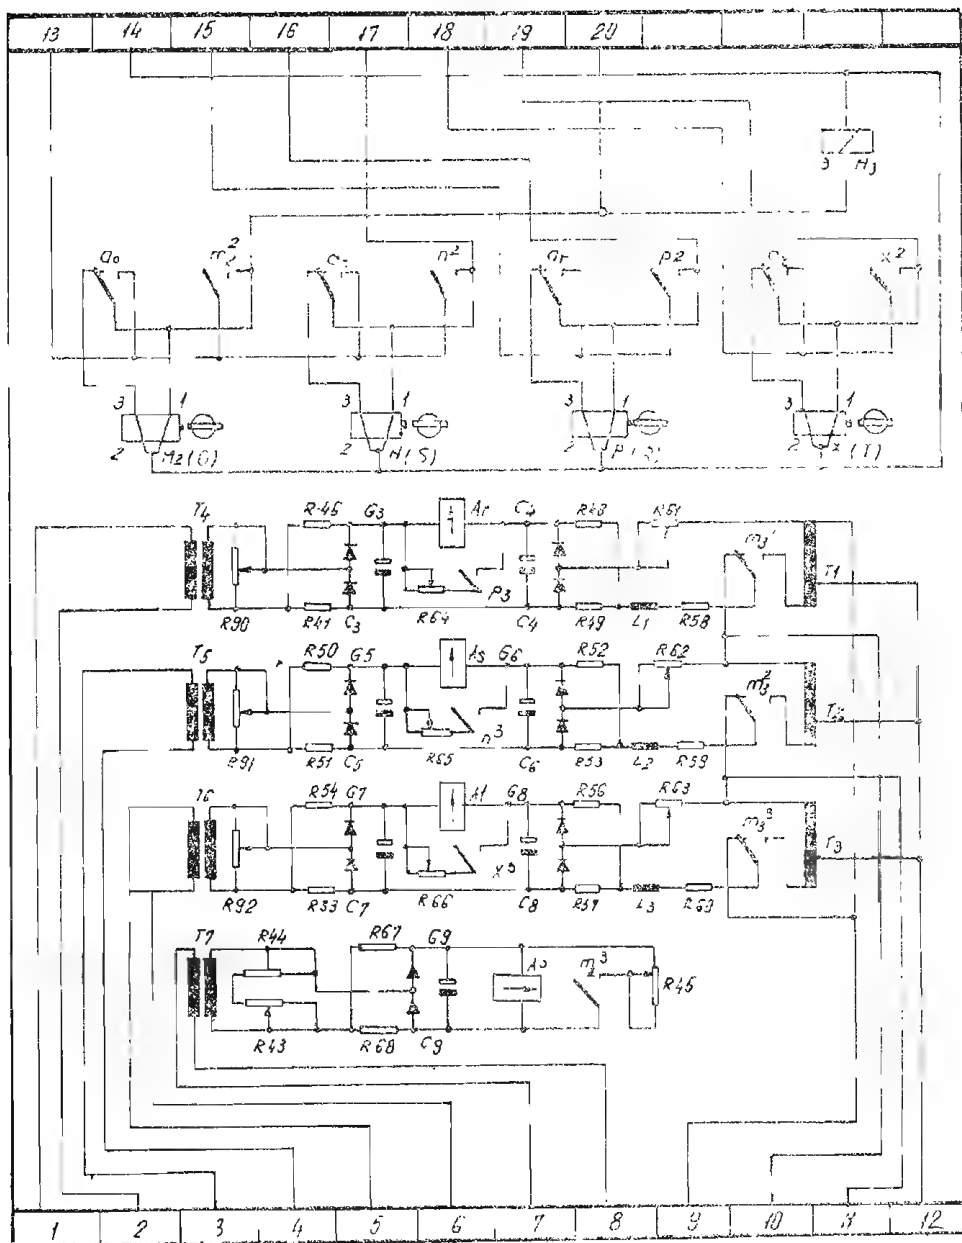 13 14 15 16 17 18 19 20
3 H3
a0 m2² n² ar p2 x²
3 1 3 1 3 1 3 1
2 M2(0) 2 H(S) 2 P(R) 2 X(T)
T4 R46 G3 Ar C4 R48 R61 m3¹ T1
R90 R41 C3 R64 P3 C4 R49 L1 R58
T5 R50 G5 As G6 R52 R62 m3² T2
R91 R51 C5 R65 n³ C6 R53 L2 R59
T6 R54 G7 At G8 R56 R63 m3³ T3
R92 R33 C7 R66 X3 C8 R57 L3 R60
T7 R44 R67 G9 m³ R45
R43 R68 C9
1 2 3 4 5 6 7 8 9 10 11 12